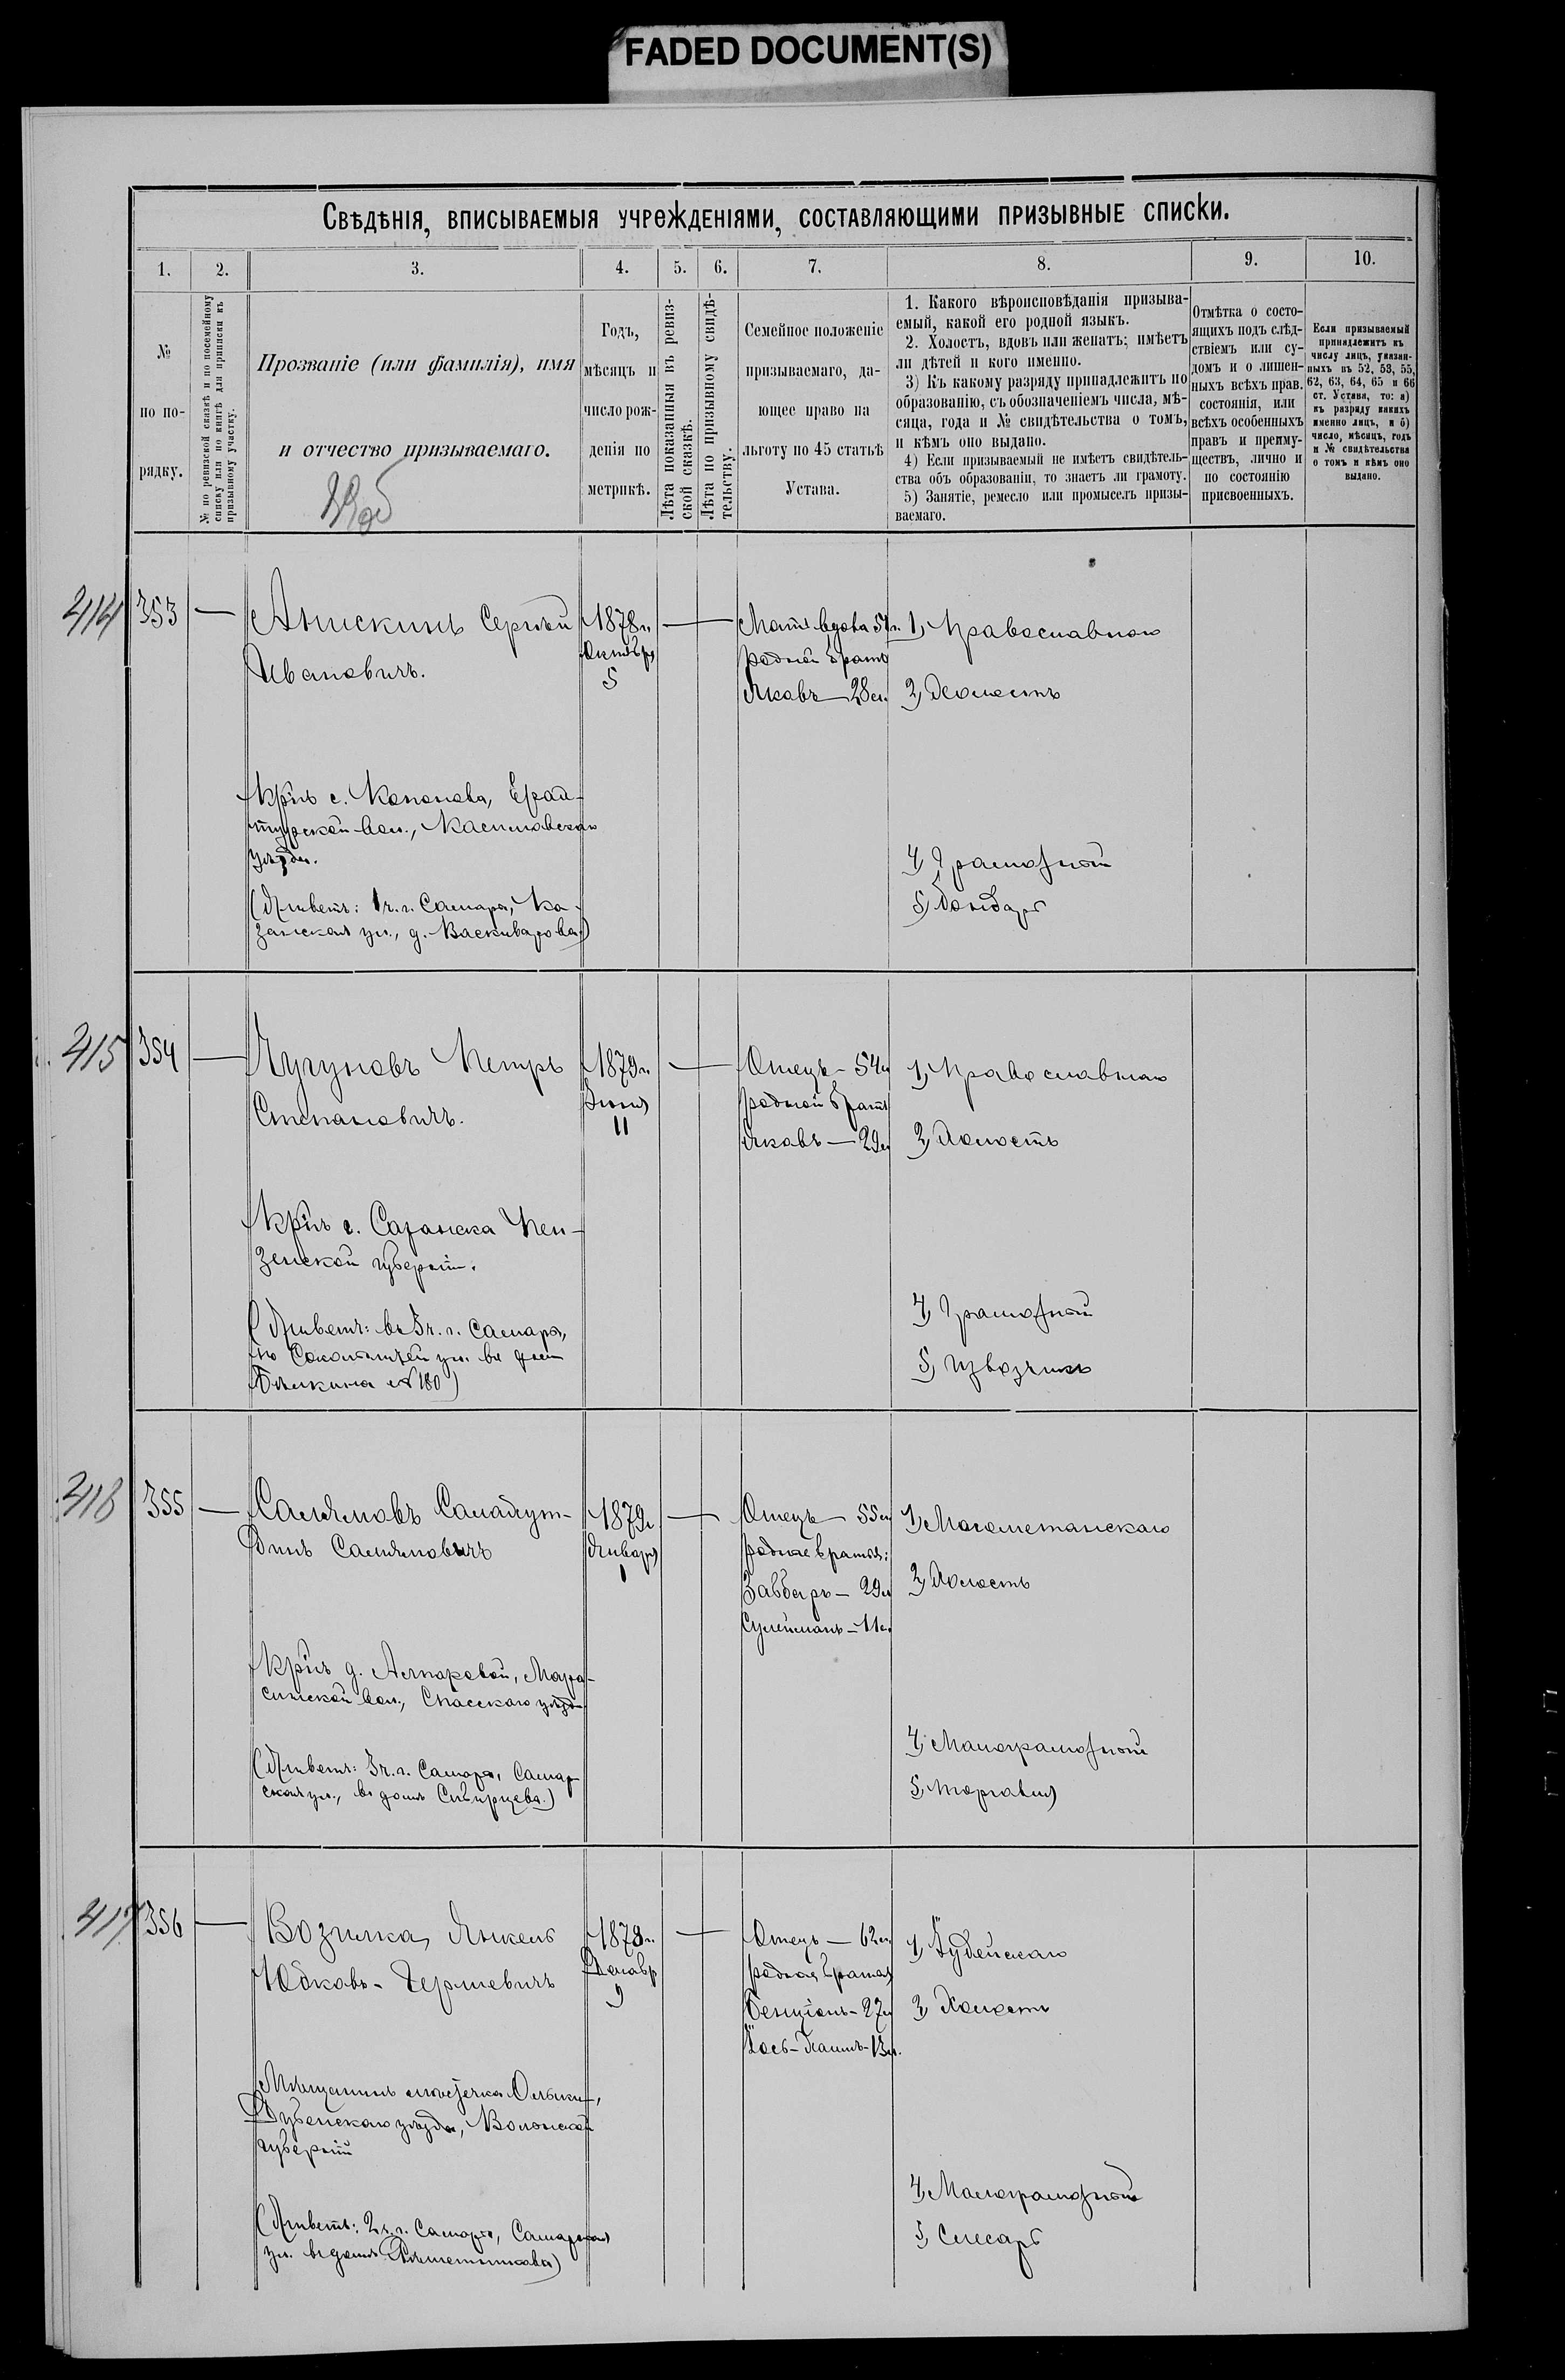 FADED DOCUMENT(S)
Свѣдѣнія, вписываемыя учрежденіями, составляющими призывные списки.
1. 2. 3. 4. 5. 6. 7. 8. 9. 10.
№ по порядку.
№ по ревизской сказкѣ и по посемейному
списку или по книгѣ для приписки къ
призывному участку.
Прозваніе (или фамилія), имя
и отчество призываемаго.
Годъ,
мѣсяцъ и
число рож-
денія по
метрикѣ.
Лѣта показанныя въ ревиз-
ской сказкѣ.
Лѣта по призывному свидѣ-
тельству.
Семейное положеніе
призываемаго, да-
ющее право на
льготу по 45 статьѣ
Устава.
1. Какого вѣроисповѣданія призыва-
емый, какой его родной языкъ.
2. Холостъ, вдовъ или женатъ; имѣетъ
ли дѣтей и кого именно.
3) Къ какому разряду принадлежитъ по
образованію, съ обозначеніемъ числа, мѣ-
сяца, года и № свидѣтельства о томъ,
и кѣмъ оно выдано.
4) Если призываемый не имѣетъ свидѣтель-
ства объ образованіи, то знаетъ ли грамоту.
5) Занятіе, ремесло или промыселъ призы-
ваемаго.
Отмѣтка о состо-
ящихъ подъ слѣд-
ствіемъ или су-
домъ и о лишен-
ныхъ всѣхъ прав.
состоянія, или
всѣхъ особенныхъ
правъ и преиму-
ществъ, лично и
по состоянію
присвоенныхъ.
Если призываемый
принадлежитъ къ
числу лицъ, указан-
ныхъ въ 52, 53, 55,
62, 63, 64, 65 и 66
ст. Устава, то: а)
къ разряду какихъ
именно лицъ, и б)
число, мѣсяцъ, годъ
и № свидѣтельства
о томъ и кѣмъ оно
выдано.
414 353 —
Анискинъ Сергѣй
Ивановичъ.
Крнъ с. Кононова, Ерах-
турской вол., Касимовскаго
уѣзда.
(Живетъ: 1 ч. г. Самара, Ка-
занская ул., д.
1878 г.
Октября
5
—
Мать вдова 51 л.
родной братъ
Яковъ — 28 л.
1, Православнаго
2, Холостъ
4, Грамотный
5, Бондарь
415 354 —
Чугуновъ Петръ
Степановичъ.
Крнъ г. Саранска Пен-
зенской губерніи.
(Живетъ: въ 3 ч. г. Самара,
по Сокольничей ул. въ домѣ
Бѣлкина № 180)
1879 г.
Іюня
11
—
Отецъ — 54 л.
родной братъ
Яковъ — 29 л.
1, Православнаго
2, Холостъ
4, Грамотный
5, Извозчикъ
416 355 —
Салямовъ Саладут-
динъ Салямовичъ
Крнъ д. Алпаровой,
Спасскаго уѣзда
(Живетъ: 3 ч. г. Самара, Самар
ская ул., въ домѣ Сибирцева.)
1879 г.
Января
1
—
Отецъ — 55 л.
родные братья:
29 л.
Сулейманъ — 11 л.
1, Магометанскаго
2, Холостъ
4, Малограмотный
5, Торговля
417 356 —
Возгилка, Янкель
Юдковъ-Гершевичъ
Мѣщанинъ мѣстечка Олыки,
Дубенскаго уѣзда, Волынской
губерніи
(Живетъ: 2 ч. г. Самара, Самарская
ул. въ домѣ Рѣшетникова)
1878 г.
Декабр
9
—
Отецъ — 62 л.
родные братья
Бенціонъ — 27 л.
13 л.
1, Іудейскаго
2, Холостъ
4, Малограмотный
5, Слесарь